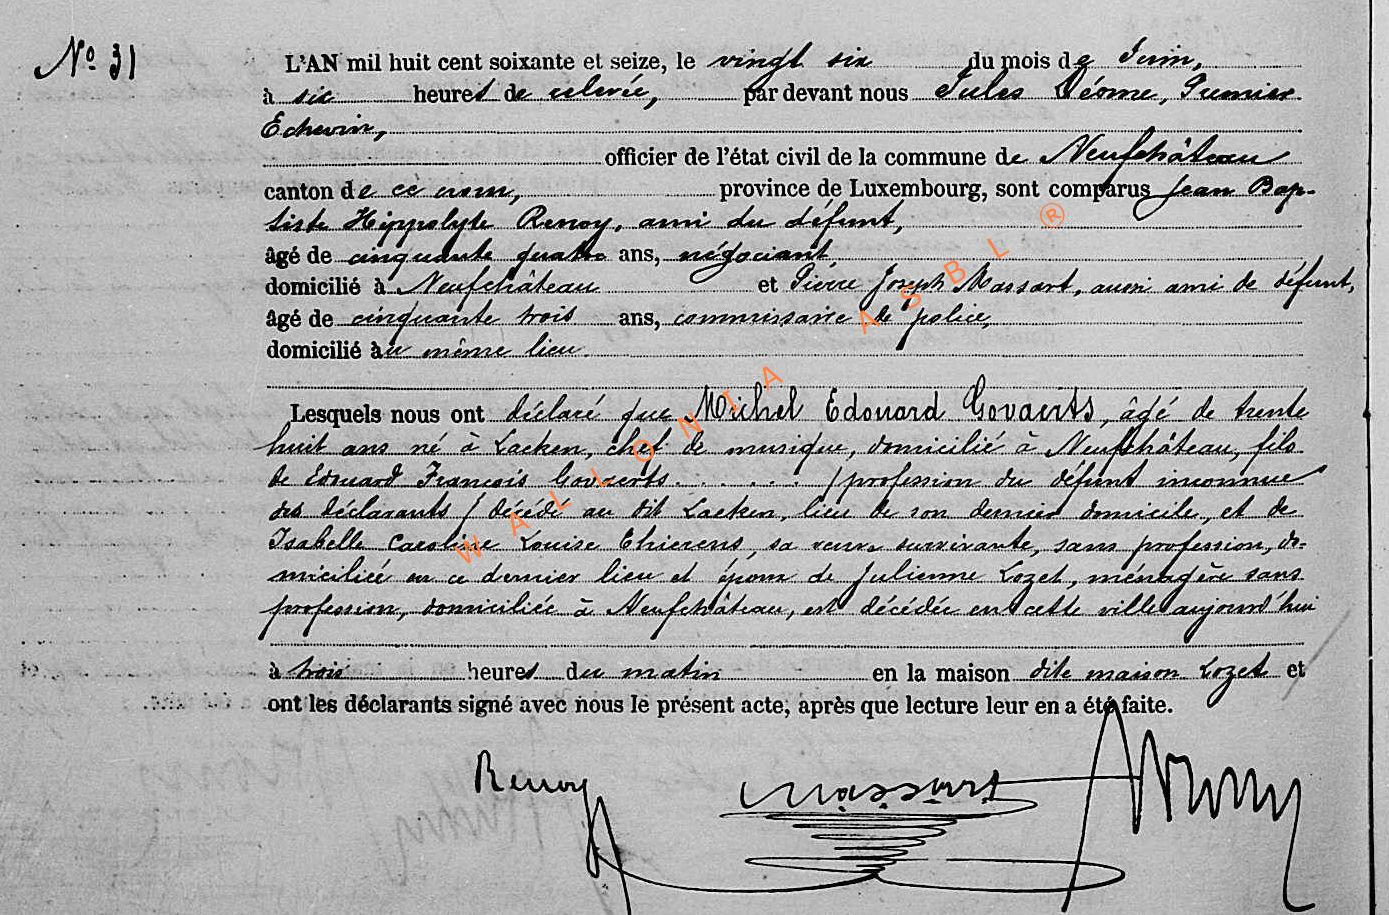 N° 31
L'AN mil huit cent soixante et seize, le vingt six du mois de Juin,
à six heures de relevée, par devant nous Jules Déome, Premier
Echevin,
officier de l'état civil de la commune de Neufchâteau
canton de ce nom, province de Luxembourg, sont comparus Jean Bap-
tiste Hippolyte Renoy, ami du défunt,
âgé de cinquante quatre ans, négociant
domicilié à Neufchâteau et Pierre Joseph Massart, aussi ami de défunt,
âgé de cinquante trois ans, commissaire de police,
domicilié au même lieu.
Lesquels nous ont déclaré que Michel Edouard Govaerts, âgé de trente
huit ans né à Laeken, chef de musique, domicilié à Neufchâteau, fils
de Edouard François Govaerts . . . . . . (profession du défunt inconnue
des déclarants) décédé au dit Laeken, lieu de son dernier domicile, et de
Isabelle Caroline Louise Thierens, sa veuve survivante, sans profession, do=
miciliée en ce dernier lieu et époux de Julienne Lozet, ménagère sans
profession, domiciliée à Neufchâteau, est décédée en cette ville aujourd'hui
à trois heures du matin en la maison dite maison Lozet et
ont les déclarants signé avec nous le présent acte, après que lecture leur en a été faite.
Renoy Massart
WALLONIA ASBL ®